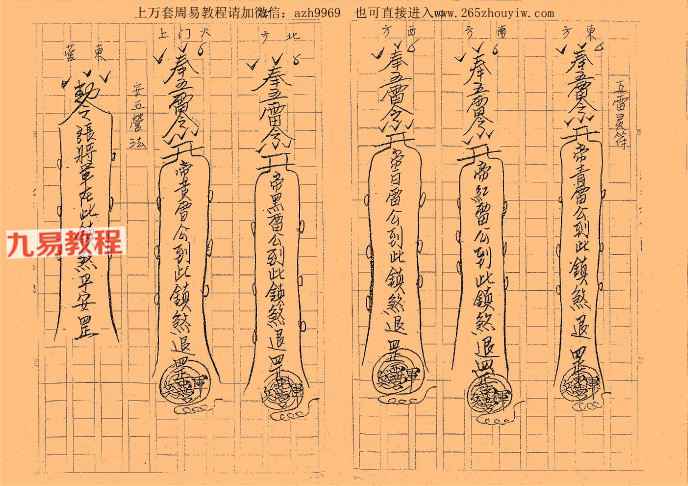 上万套周易教程请加微信：azh9969 也可直接进入www.265zhouyiw.com
五雷灵符
東方
奉五雷令
帝青雷公到此鎮煞退罡
南方
奉五雷令
帝紅雷公到此鎮煞退罡
西方
奉五雷令
帝白雷公到此鎮煞退罡
北方
奉五雷令
帝黑雷公到此鎮煞退罡
大门上
奉五雷令
帝黄雷公到此鎮煞退罡
安五營法
東營
勅令張將軍在此
煞平安罡
九易教程